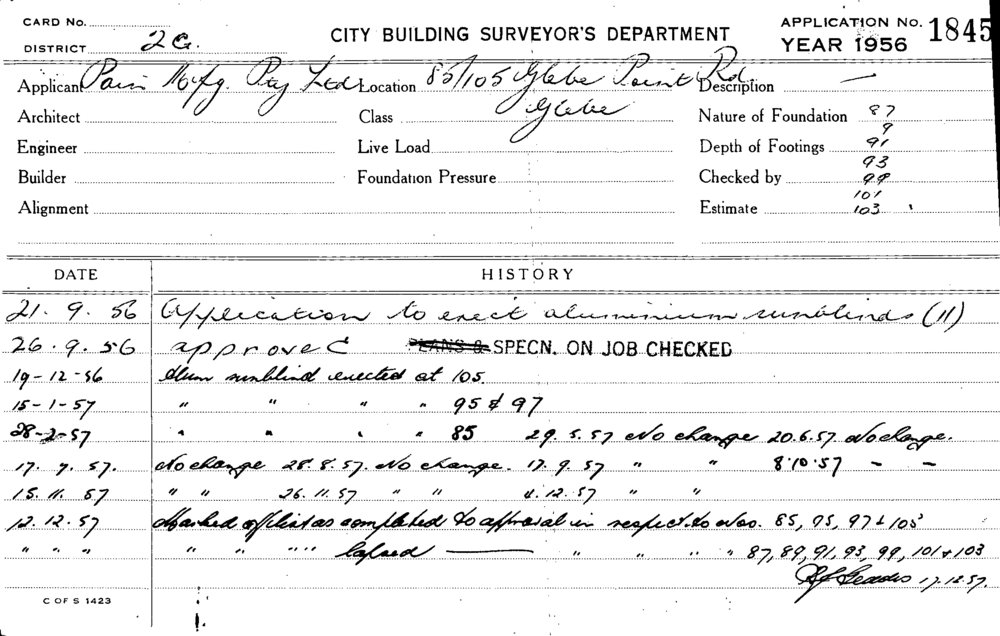 CARD No.
DISTRICT 2G.
CITY BUILDING SURVEYOR'S DEPARTMENT
APPLICATION No. 1845
YEAR 1956
Applicant Mnfg. Pty Ltd Location 85/105 Glebe Point Rd Description —
Glebe
Architect Class Nature of Foundation 87
9
Engineer Live Load Depth of Footings 91
93
Builder Foundation Pressure Checked by 99
101
Alignment Estimate 103
DATE HISTORY
21. 9. 56 Application to erect aluminium sunblinds (11)
26. 9. 56 approved PLANS & SPECN. ON JOB CHECKED
19-12-56 Alum sunblind erected at 105.
15-1-57 " " " " 95 & 97
28-2-57 " " " " 85 29.5.57 No change 20.6.57 No change.
17. 7. 57. No change 28.8.57. No change. 17.9.57 " " 8.10.57 – –
15. 11. 57 " " 26.11.57 " " 4.12.57 " "
12.12.57 Marked off list as completed to approval in respect to Nos. 85, 95, 97 & 105
" " " " " " " lapsed — " " " " 87, 89, 91, 93, 99, 101 & 103
17.12.57.
C OF S 1423